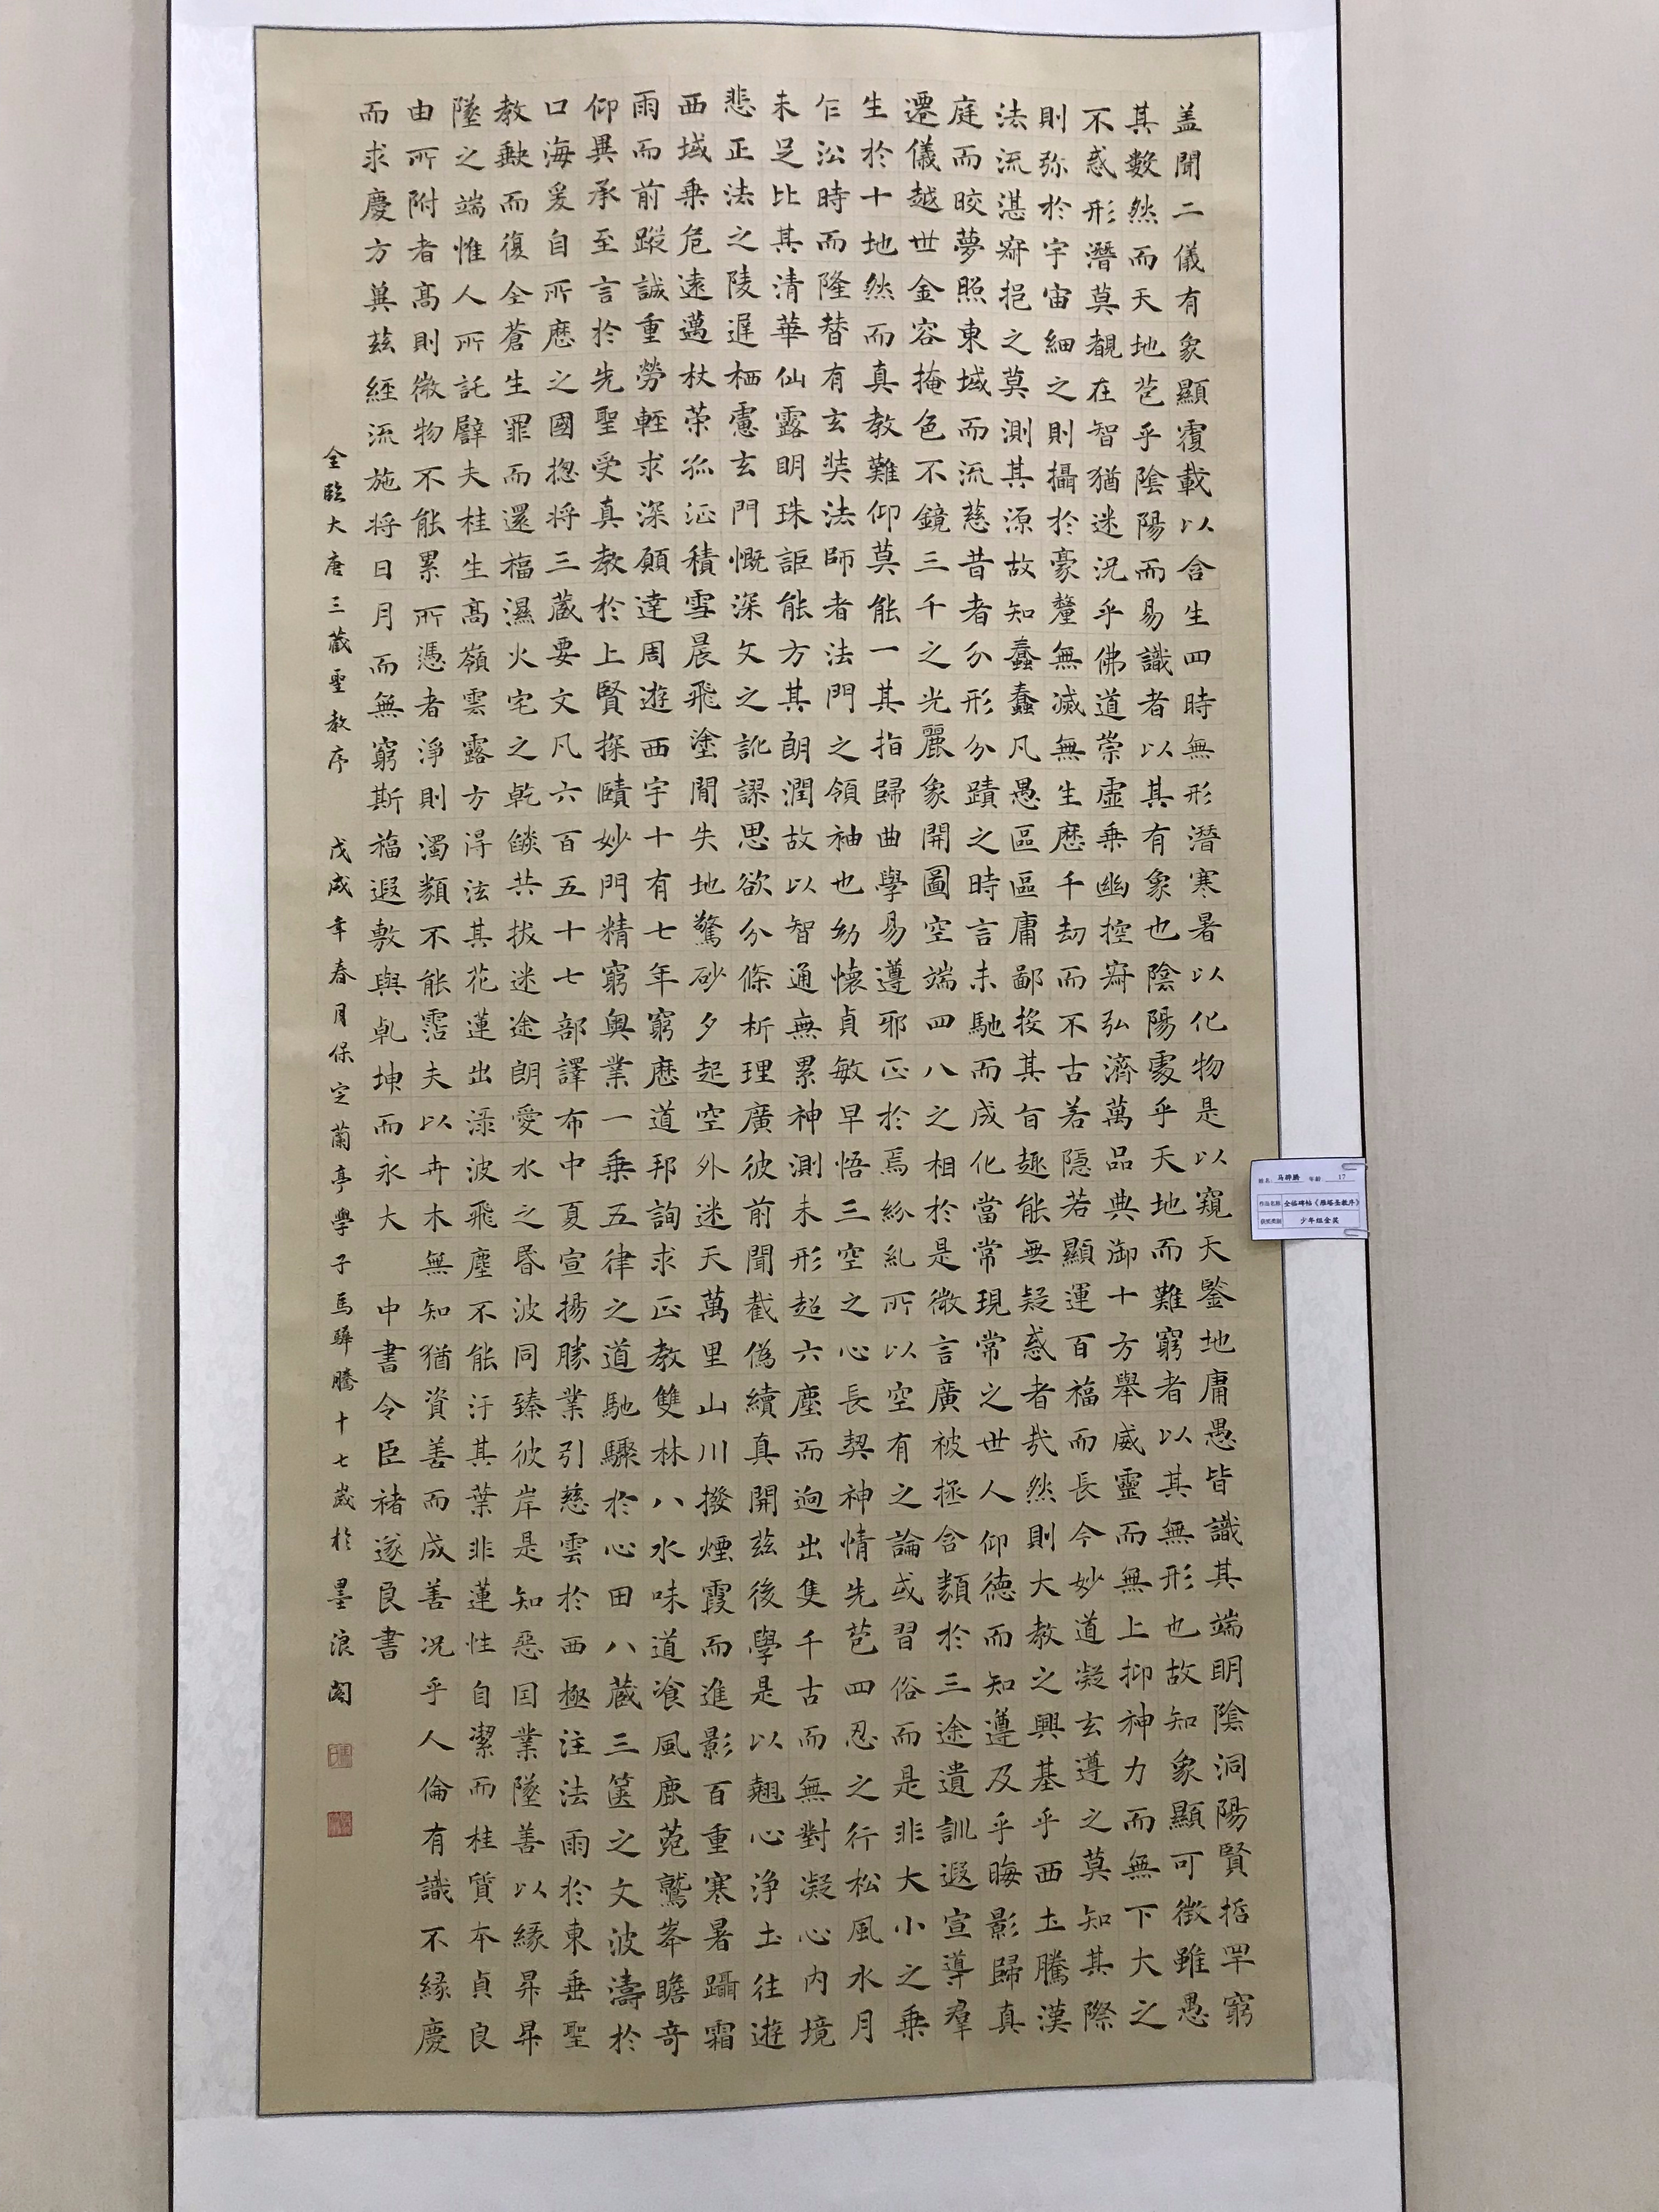 盖聞二儀有象顯覆載以含生四時無形潛寒暑以化物是以窺天鑒地庸愚皆識其端明陰洞陽賢哲罕窮
其數然而天地苞乎陰陽而易識者以其有象也陰陽處乎天地而難窮者以其無形也故知象顯可徵雖愚
不惑形潛莫覩在智猶迷況乎佛道崇虛乘幽控寂弘濟萬品典御十方舉威靈而無上抑神力而無下大之
則弥於宇宙細之則攝於豪釐無滅無生歷千劫而不古若隱若顯運百福而長今妙道凝玄遵之莫知其際
法流湛寂挹之莫測其源故知蠢蠢凡愚區區庸鄙投其旨趣能無疑惑者哉然則大教之興基乎西土騰漢
庭而晈夢照東域而流慈昔者分形分蹟之時言未馳而成化當常現常之世人仰德而知遵及乎晦影歸真
遷儀越世金容掩色不鏡三千之光麗象開圖空端四八之相於是微言廣被拯含類於三途遺訓遐宣導羣
生於十地然而真教難仰莫能一其指歸曲學易遵邪正於焉紛糺所以空有之論或習俗而是非大小之乘
乍沿時而隆替有玄奘法師者法門之領袖也幼懷貞敏早悟三空之心長契神情先苞四忍之行松風水月
未足比其清華仙露明珠詎能方其朗潤故以智通無累神測未形超六塵而迥出隻千古而無對凝心內境
悲正法之陵遲栖慮玄門慨深文之訛謬思欲分條析理廣彼前聞截偽續真開茲後學是以翹心淨土往遊
西域乘危遠邁杖策孤征積雪晨飛塗閒失地驚砂夕起空外迷天萬里山川撥煙霞而進影百重寒暑躡霜
雨而前蹤誠重勞輕求深願達周遊西宇十有七年窮歷道邦詢求正教雙林八水味道飡風鹿菀鷲峯瞻奇
仰異承至言於先聖受真教於上賢探賾妙門精窮奧業一乘五律之道馳驟於心田八藏三篋之文波濤於
口海爰自所歷之國惣將三藏要文凡六百五十七部譯布中夏宣揚勝業引慈雲於西極注法雨於東垂聖
教缺而復全蒼生罪而還福濕火宅之乾燄共拔迷途朗愛水之昏波同臻彼岸是知惡因業墜善以緣昇昇
墜之端惟人所託譬夫桂生高嶺雲露方得泫其花蓮出淥波飛塵不能汙其葉非蓮性自潔而桂質本貞良
由所附者高則微物不能累所憑者淨則濁類不能霑夫以卉木無知猶資善而成善況乎人倫有識不緣慶
而求慶方冀茲經流施將日月而無窮斯福遐敷與乹坤而永大 中書令臣褚遂良書
全臨大唐三藏聖教序 戊戌年春月保定蘭亭學子馬驊騰十七歲於墨浪閣
姓名：马骅腾 年龄 17
作品名称 全临碑帖《雁塔圣教序》
获奖类别 少年组金奖